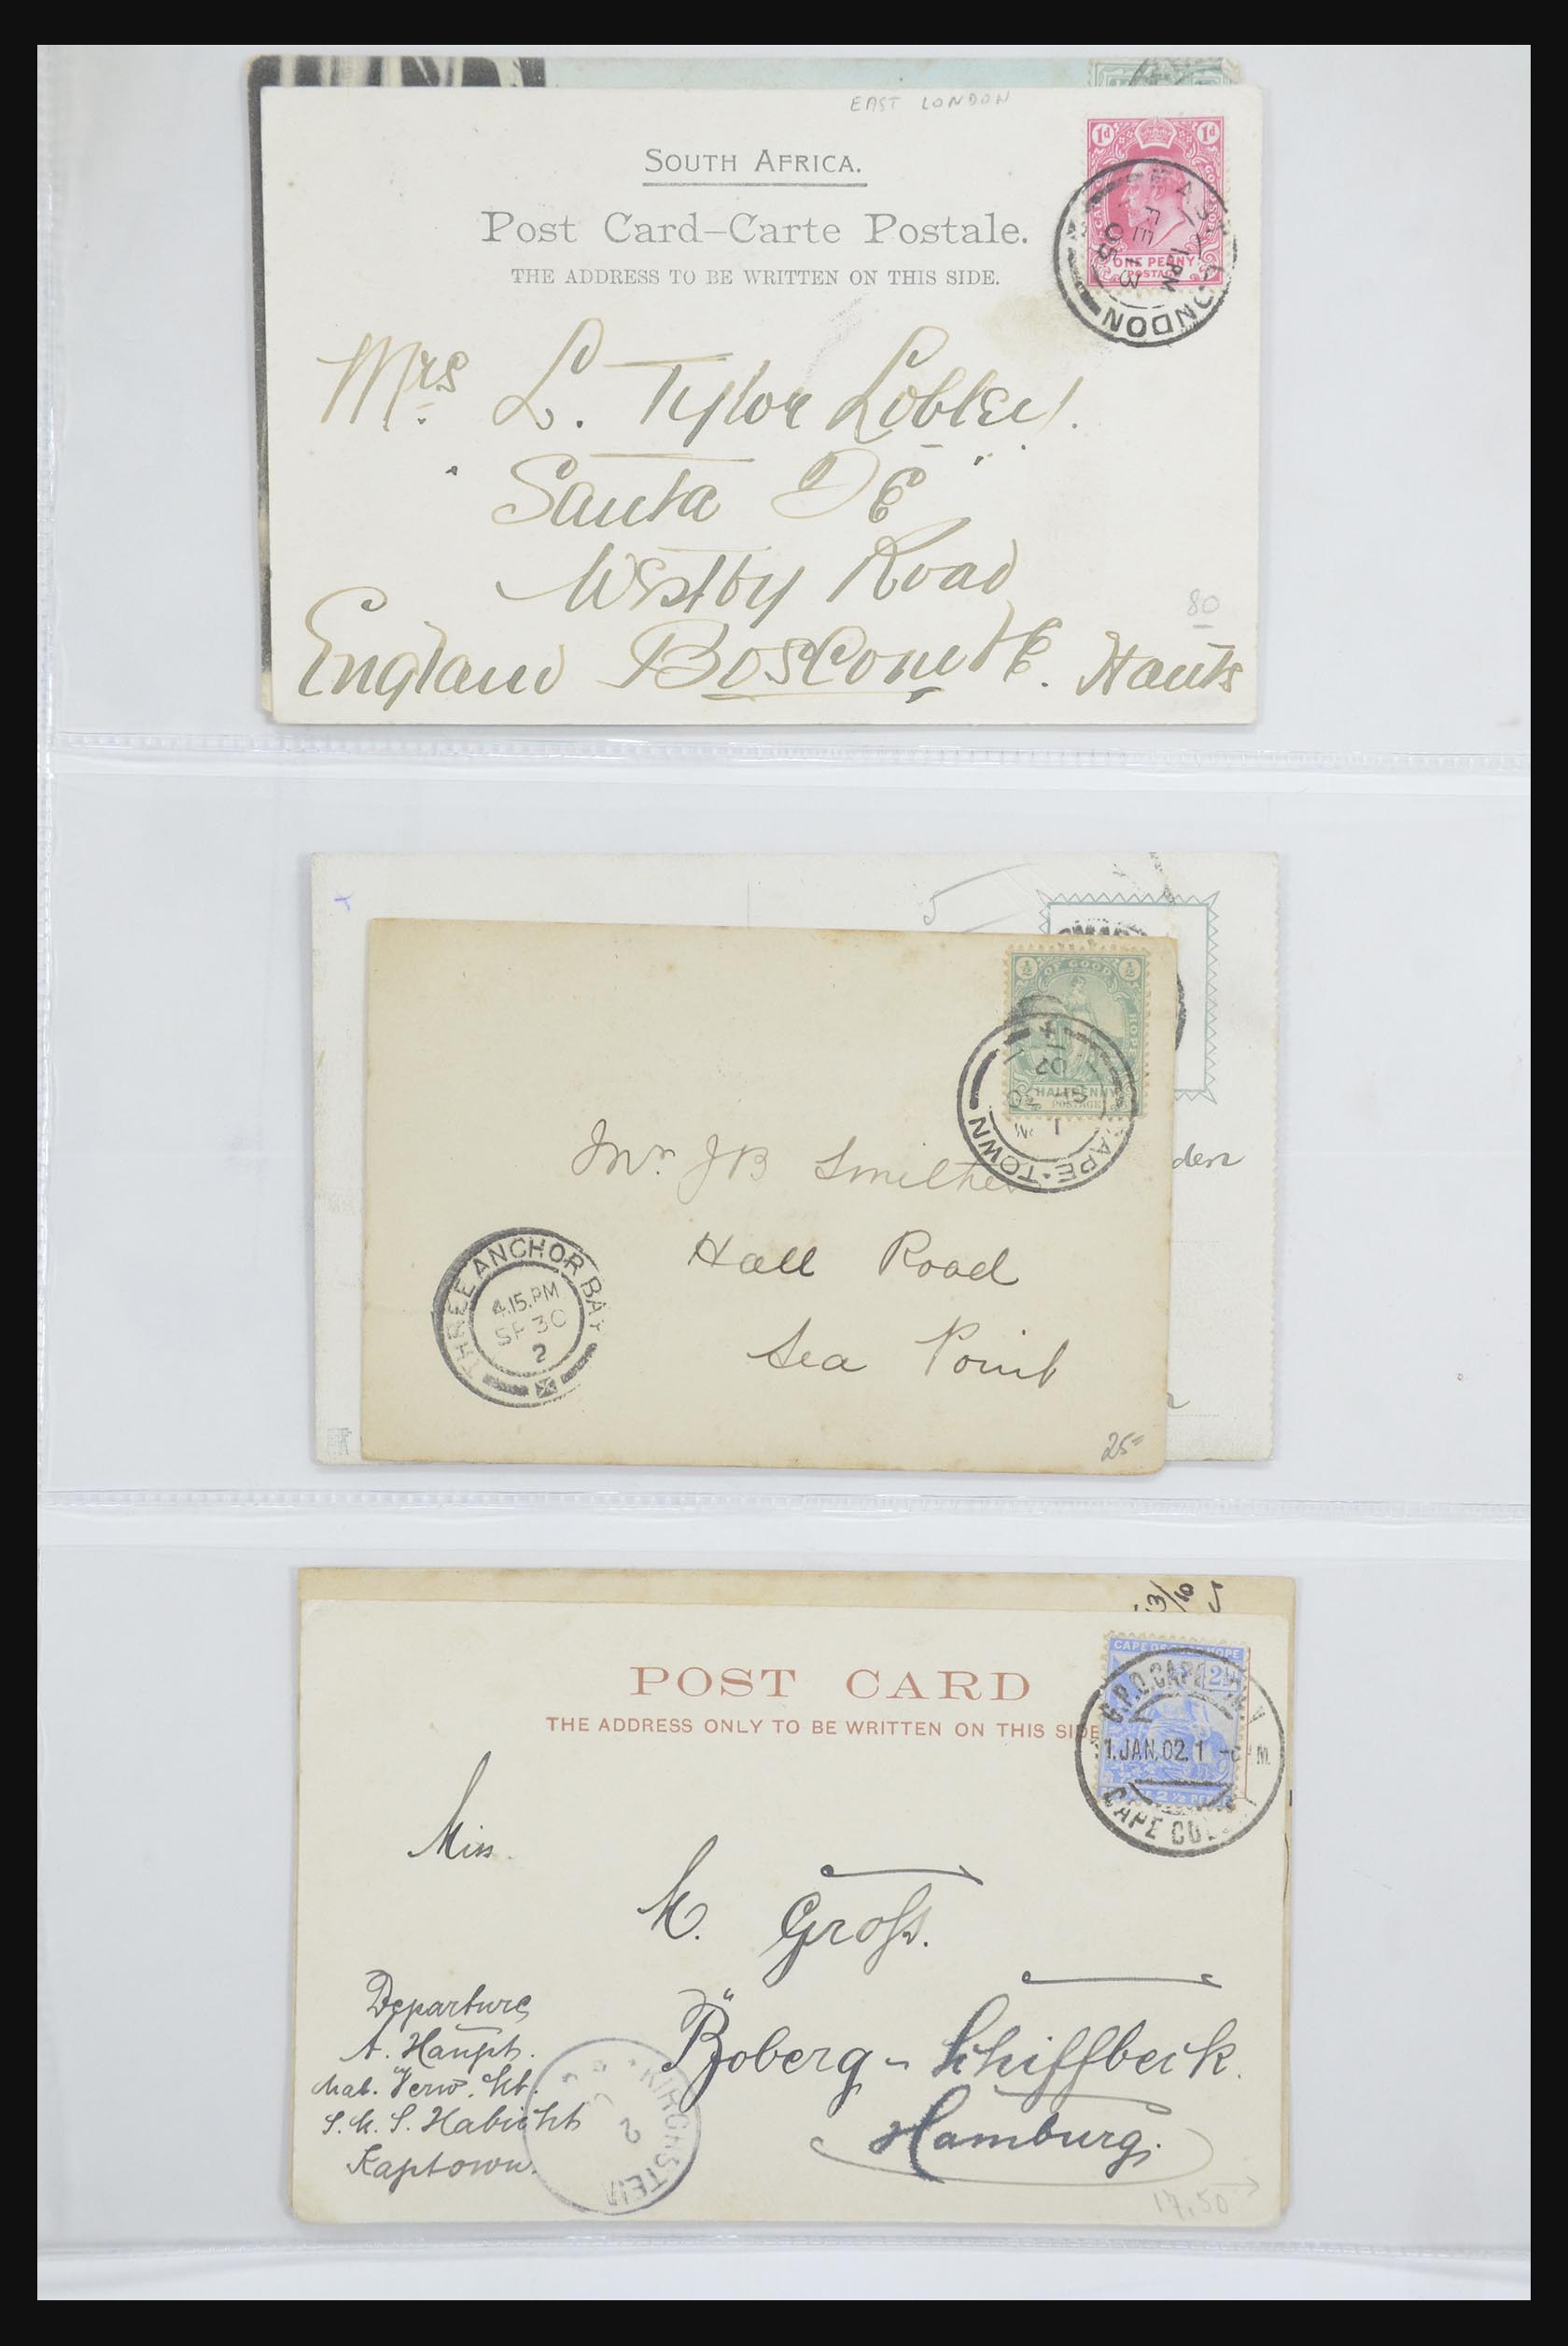 EAST LONDON
SOUTH AFRICA.
Post Card–Carte Postale.
THE ADDRESS TO BE WRITTEN ON THIS SIDE.
1d 1d
ONE PENNY
POSTAGE
LONDON
1 PM
FE 13
05
Mrs L. Tylor Lobley.
"Santa Fé"
Westby Road
England Boscombe. Hants
80
½ OF GOOD ½
HOPE
HALFPENNY
POSTAGE
CAPE·TOWN
02
Mr. J B Smithers
Hall Road
Sea Point
THREE ANCHOR BAY
4.15.PM
SP 30
2
den
25
13/10
POST CARD
THE ADDRESS ONLY TO BE WRITTEN ON THIS SIDE
CAPE OF GOOD HOPE
2½
G.P.O. CAPE
1.JAN.02.1
CAPE COL
Miss.
M. Groß.
Boberg - Schiffbeck.
Hamburg.
Departure
A. Haupt.
Mat. Verw. Mt.
S.M.S. Habicht
Kaptown.
KIRCHSTEIN
2
17,50